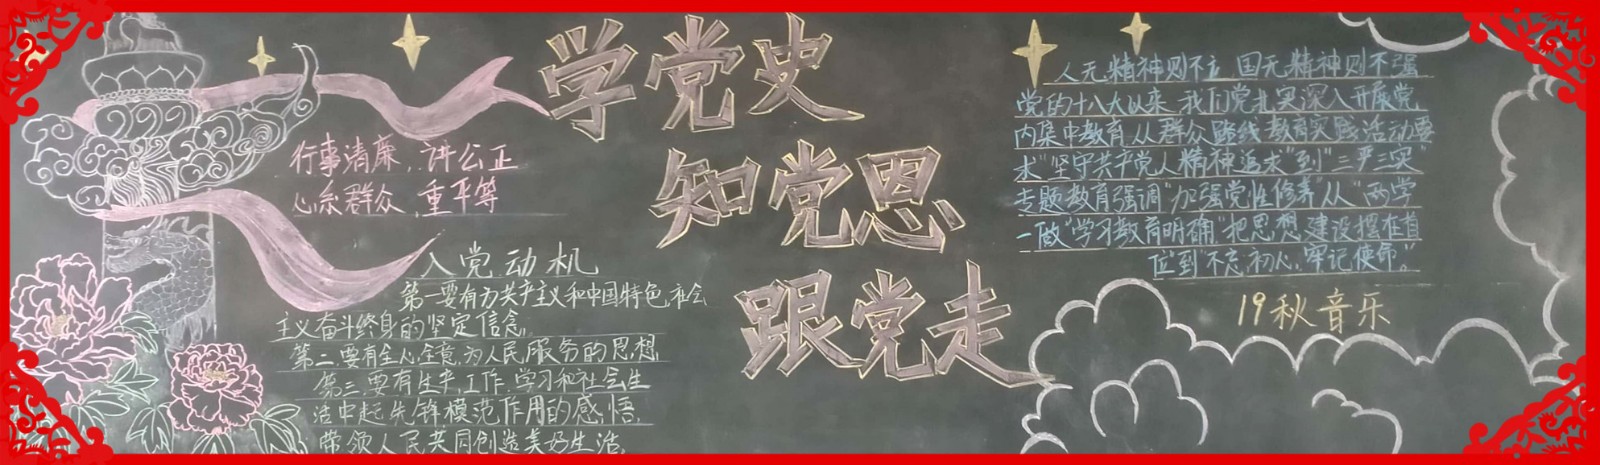 学党史
知党恩
跟党走
行事清廉,讲公正
心系群众,重平等
入党动机
第一要有为共产主义和中国特色社会
主义奋斗终身的坚定信念。
第二,要有全心全意为人民服务的思想
第三,要有生产,工作,学习和社会生
活中起先锋模范作用的感悟,
带领人民共同创造美好生活。
人无精神则不立 国无精神则不强
党的十八大以来,我们党扎实深入开展党
内集中教育,从群众路线教育实践活动要
求"坚守共产党人精神追求"到"三严三实"
专题教育强调"加强党性修养"从"两学
一做"学习教育明确"把思想建设摆在首
位"到"不忘初心,牢记使命。"
19秋音乐